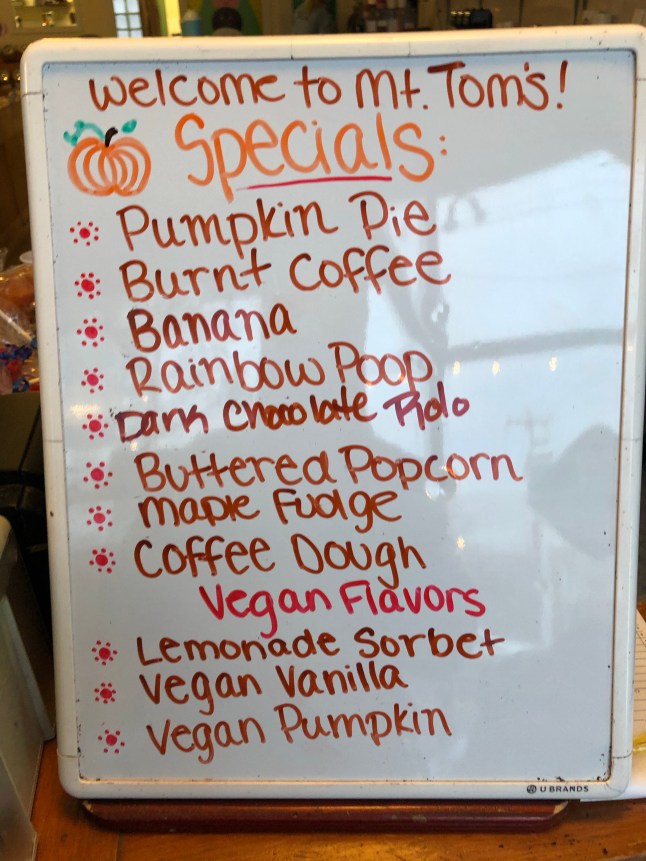 Welcome to Mt. Tom's!
Specials:
Pumpkin Pie
Burnt Coffee
Banana
Rainbow Poop
Dark Chocolate Rolo
Buttered Popcorn
maple Fudge
Coffee Dough
Vegan Flavors
Lemonade Sorbet
Vegan Vanilla
Vegan Pumpkin
U BRANDS